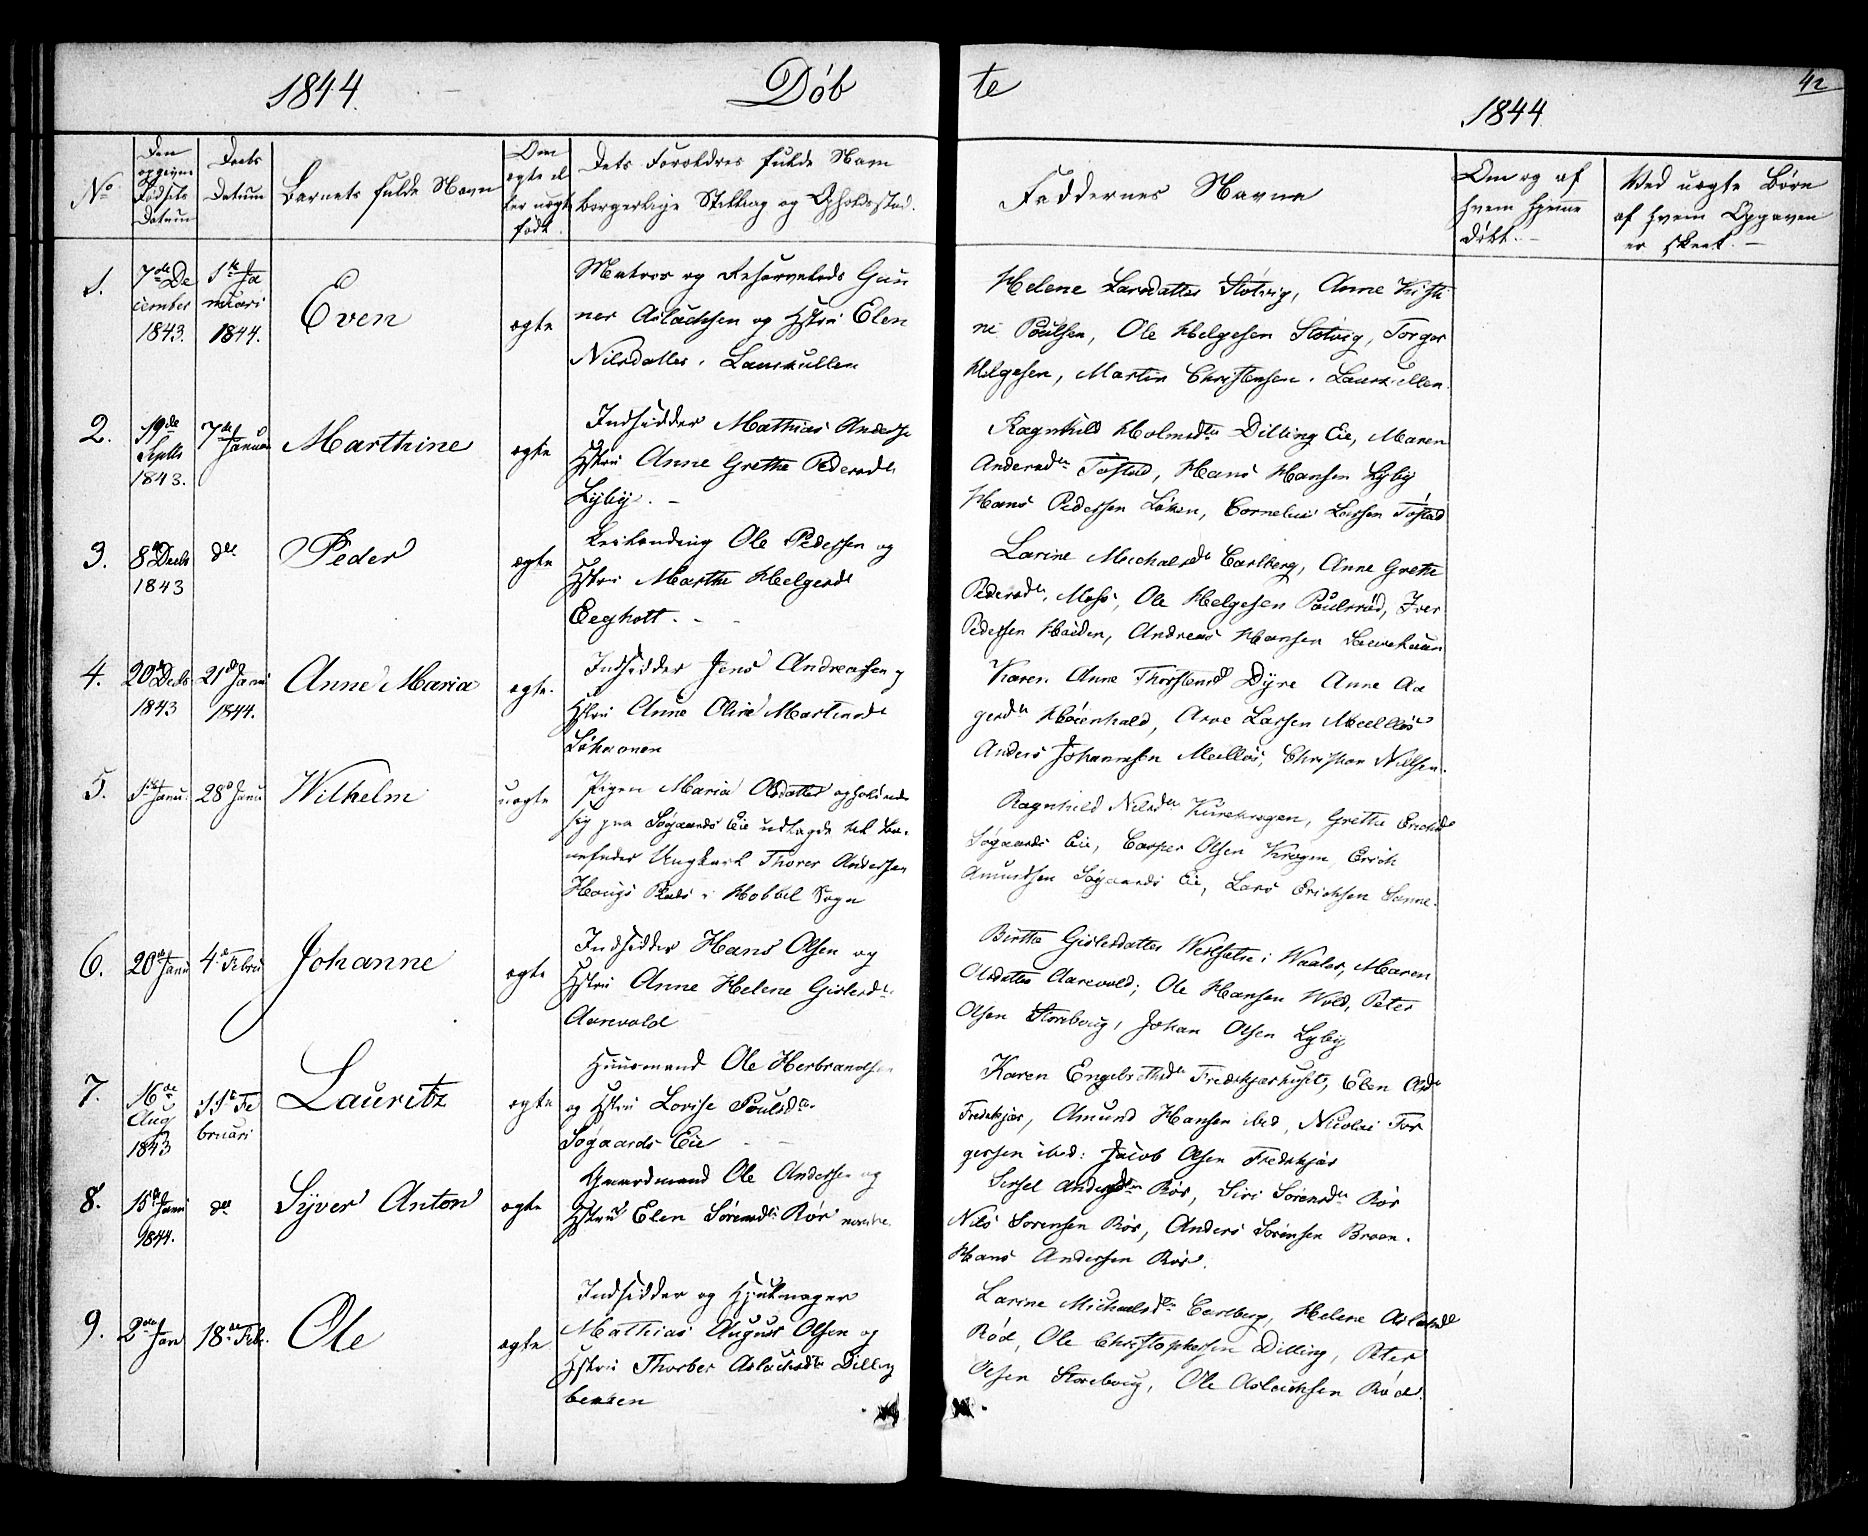 1844.
Döb
te
1844
42
No
Den
opgivne
Födsels
Datum
Daabs
Datum
Barnets fulde Navn
Om
ægte el
ler uægte
född.
Dets Forældres fulde Navn
borgerlige Stilling og Opholdssted.
Faddernes Navne
Om og af
hvem hjemme
döbt. -
Ved uægte Börn
af hvem Opgaven
er skeet. -
1.
7de De
cember
1843.
1te Ja
nuari
1844.
Even
ægte
Matros og Gun
ner Aslachsen og Hstru Elen
Nilsdatter. Laurkullen
Helene Larsdatter Stötvig, Anne Kisti
ne Poulsen, Ole Helgesen Stötvig, Torger
Helgesen, Martin Christensen. Laurkullen.
2.
19de
Septb
1843.
7de Januar
Marthine
ægte
Indsidder Mathias Anderse
Hstru Anne Grethe Pedersdtr
Lyby. -
Ragnhild Holmsdtr Dilling Eie, Maren
Andersdtr Tofted, Hans Hansen Lyby
Hans Pedersen Löken, Cornelius Larsen Tofted
3.
8de Decb
1843
do
Peder
ægte
Ole Pedersen og
Hstru Marthe Helgesdtr
Eegholt. - -
Larine Michalsdtr Carlberg, Anne Grethe
Pedersdtr, Moss, Ole Helgesen Poulsröd, Iver
Pedersen Haiden, Andreas Hansen
4.
20de Decb
1843
21de Januar
1844.
Anne Maria
ægte.
Indsidder Jens Andreassen og
Hstru Anne Olive Martinsdtr
Karen Anne Thorstensd Dyre Anne Aa
gesdtr Höienhald, Arve Larsen Mellös
Anders Johannesen Mellös, Christian Nilsen.
5.
1te Janu.
28de Janu
Wilhelm
uægte
Pigen Maria Olsdatter opholdende
sig paa Sögaards Eie udlagde til Bar
nefader Ungkarl Thorer Andersen
Haugs Plads i Hobbel Sogn
Ragnhild Nilsdtr Kurekragen, Grethe Erichsd
Sögaards Eie, Casper Olsen Kragen Erich
Amundsen Sögaards Eie, Lars Erichsen Sonne.
6.
20de Janu
4de Febru
Johanne
ægte
Indsidder Hans Olsen og
Hstru Anne Helene Gislersdtr
Aarevold
Birthe Gislersdatter i Waaler, Maren
Olsdatter Aarevold; Ole Hansen Wold, Peter
Olsen Storebaug, Johan Olsen Lyby
7.
16de
Aug
1843
11te Fe
bruari
Lauritz
ægte
Huusmand Ole Herbrandsen
og Hstru Lovise Poulsdtr.
Sögaards Eie - -
Karen Engebrethsdtr Fredekjærhuset, Elen Olsdtr
Fredekjær, Amund Hansen ibid, Nicolai Tor
gersen ibid: Jacob Olsen Fredekjær
8.
15de Janu
1844.
do
Syver Anton
ægte
Gaardmand Ole Andersen og
Hstru Elen Sörensdtr Rör nordre
Sirsel Andersdtr Rör, Siri Sörensdtr Rör
Nils Sorensen Rör, Anders Sörensen Broen.
Hans Andersen Rör.
9.
2den Janu
18de Feb.
Ole
ægte
Indsidder og Hjulmager
Mathias August Olsen og
Hstru Thorber Aslachsdtr Dilling
bakken
Larine Michaelsdtr Carlberg, Helene Aslachsd
Röd, Ole Christophersen Dilling, Peter
Olsen Storebaug, Ole Aslachsen Röd.